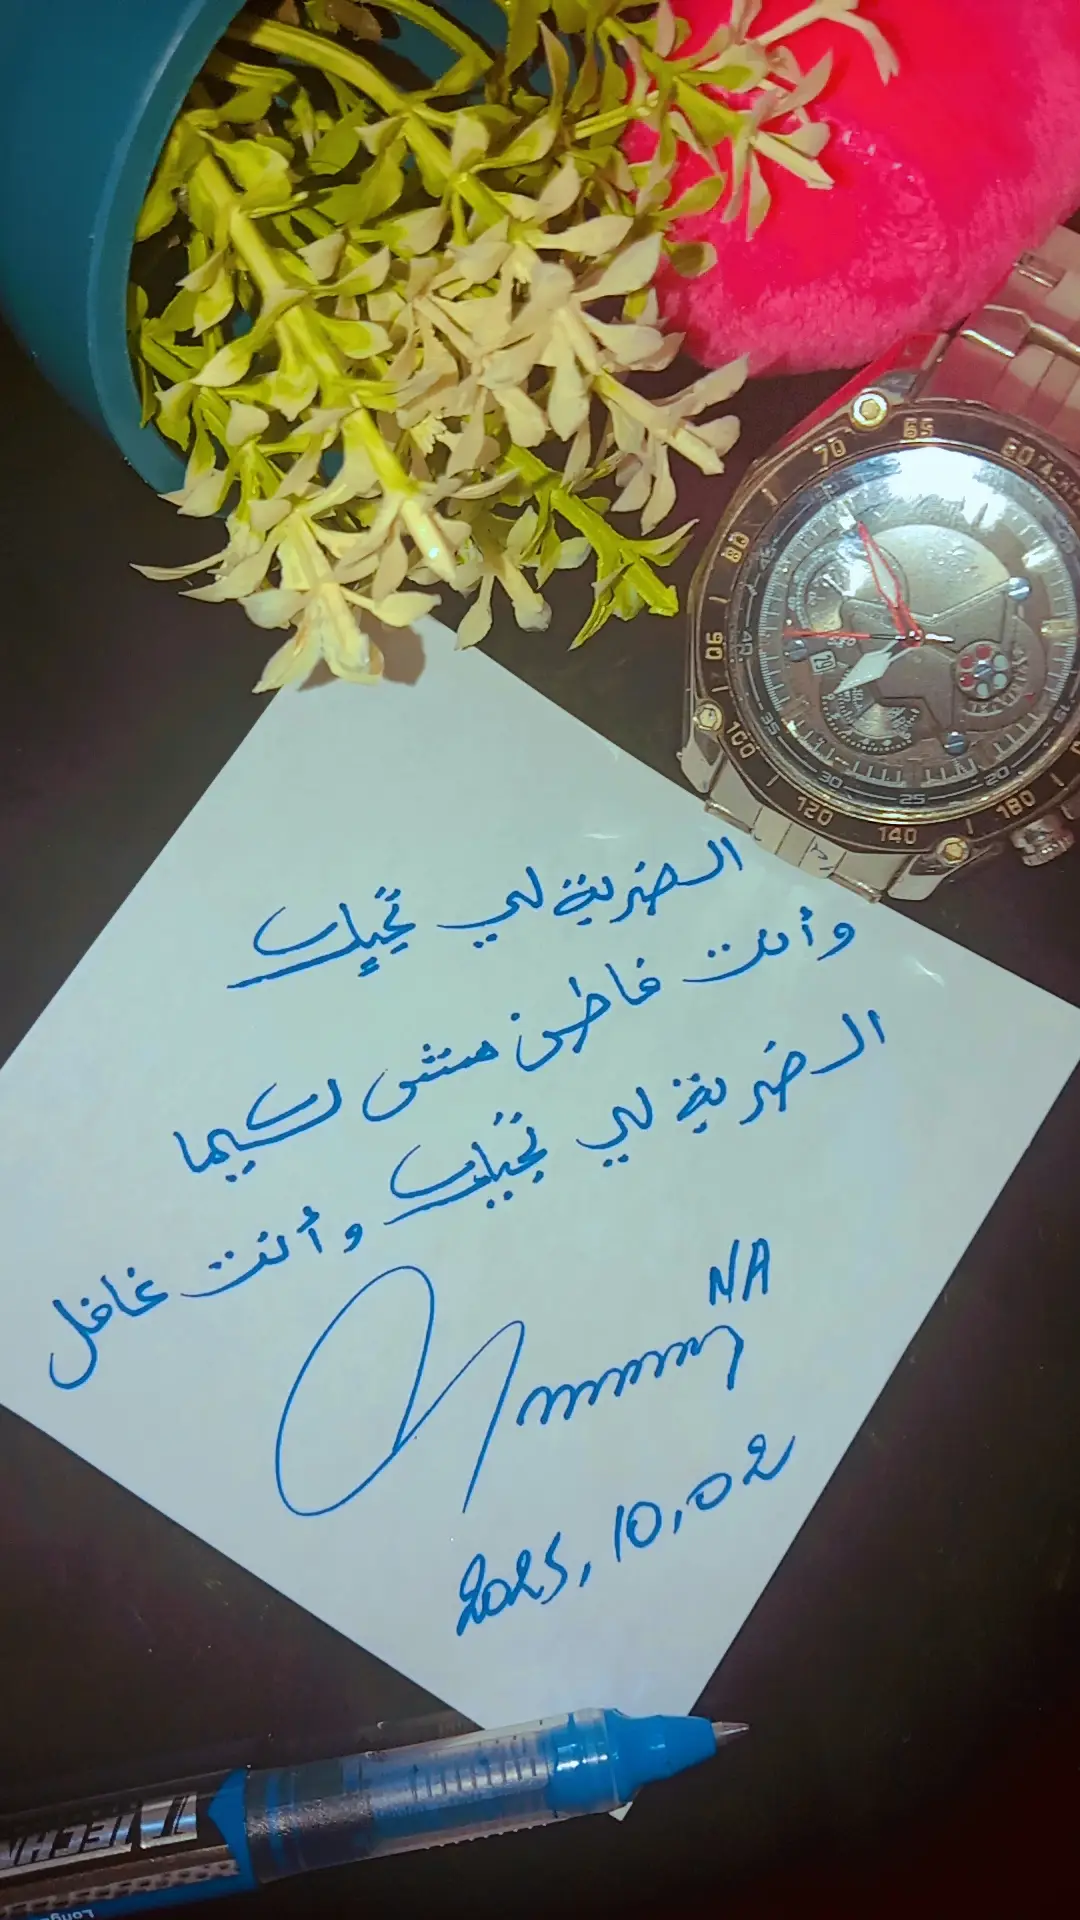 الضربة لي تجيك
وأنت فاطن متش لسيما
الضربة لي تجيك وأنت غافل
NA
2025,10,02
65
70
60
80
90
100
120
140
180
35
30
25
20
29